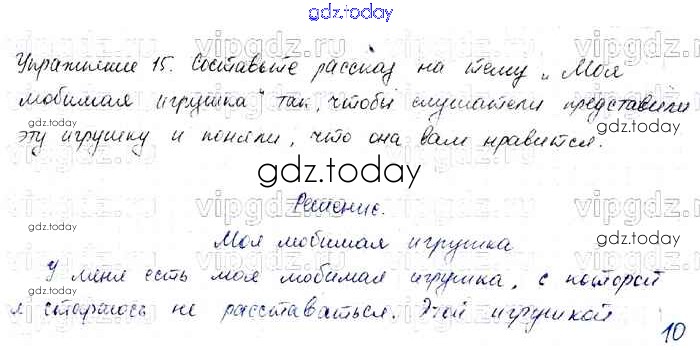 gdz.today
Упражнение 15. Составьте рассказ на тему „Моя
любимая игрушка" так, чтобы слушатели представили
эту игрушку и поняли, что она вам нравится.
gdz.today
Решение.
Моя любимая игрушка
У меня есть моя любимая игрушка, с которой
я стараюсь не расставаться. Этой игрушкой
10